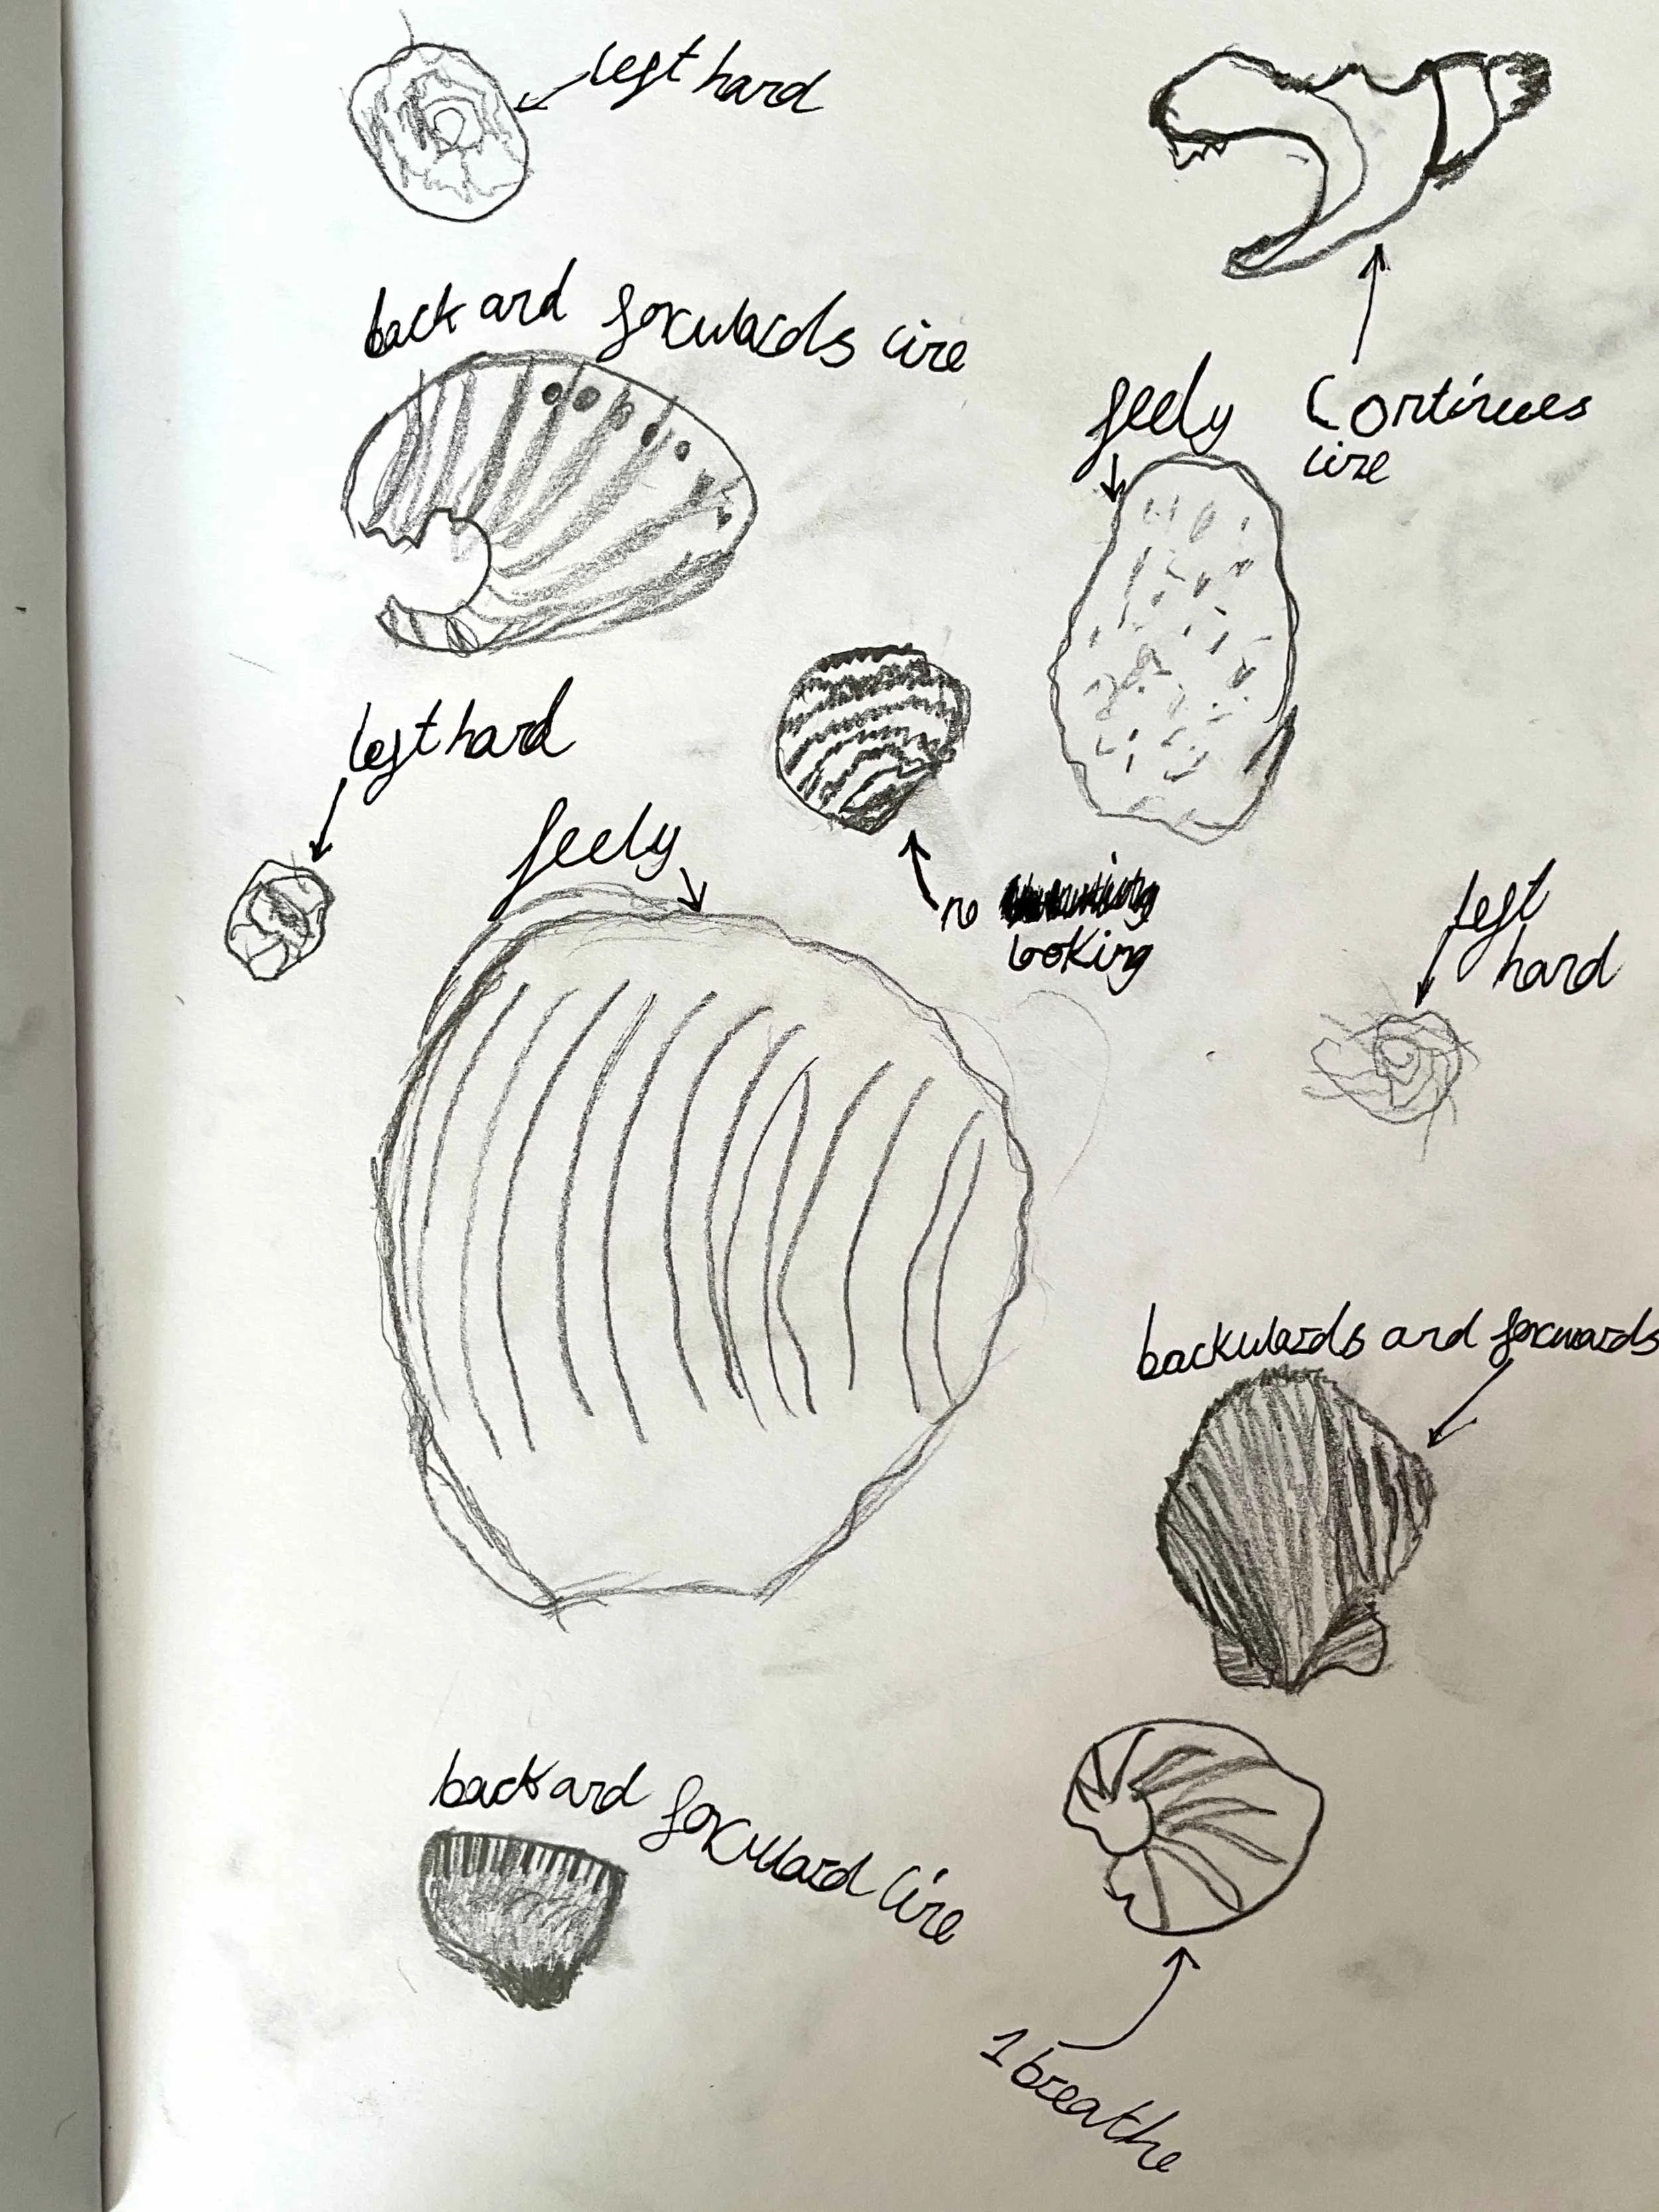 left hand
back and forwards line
feely
Continues
line
left hand
feely
no
looking
left
hand
backwards and forwards
back and forward line
1 breathe